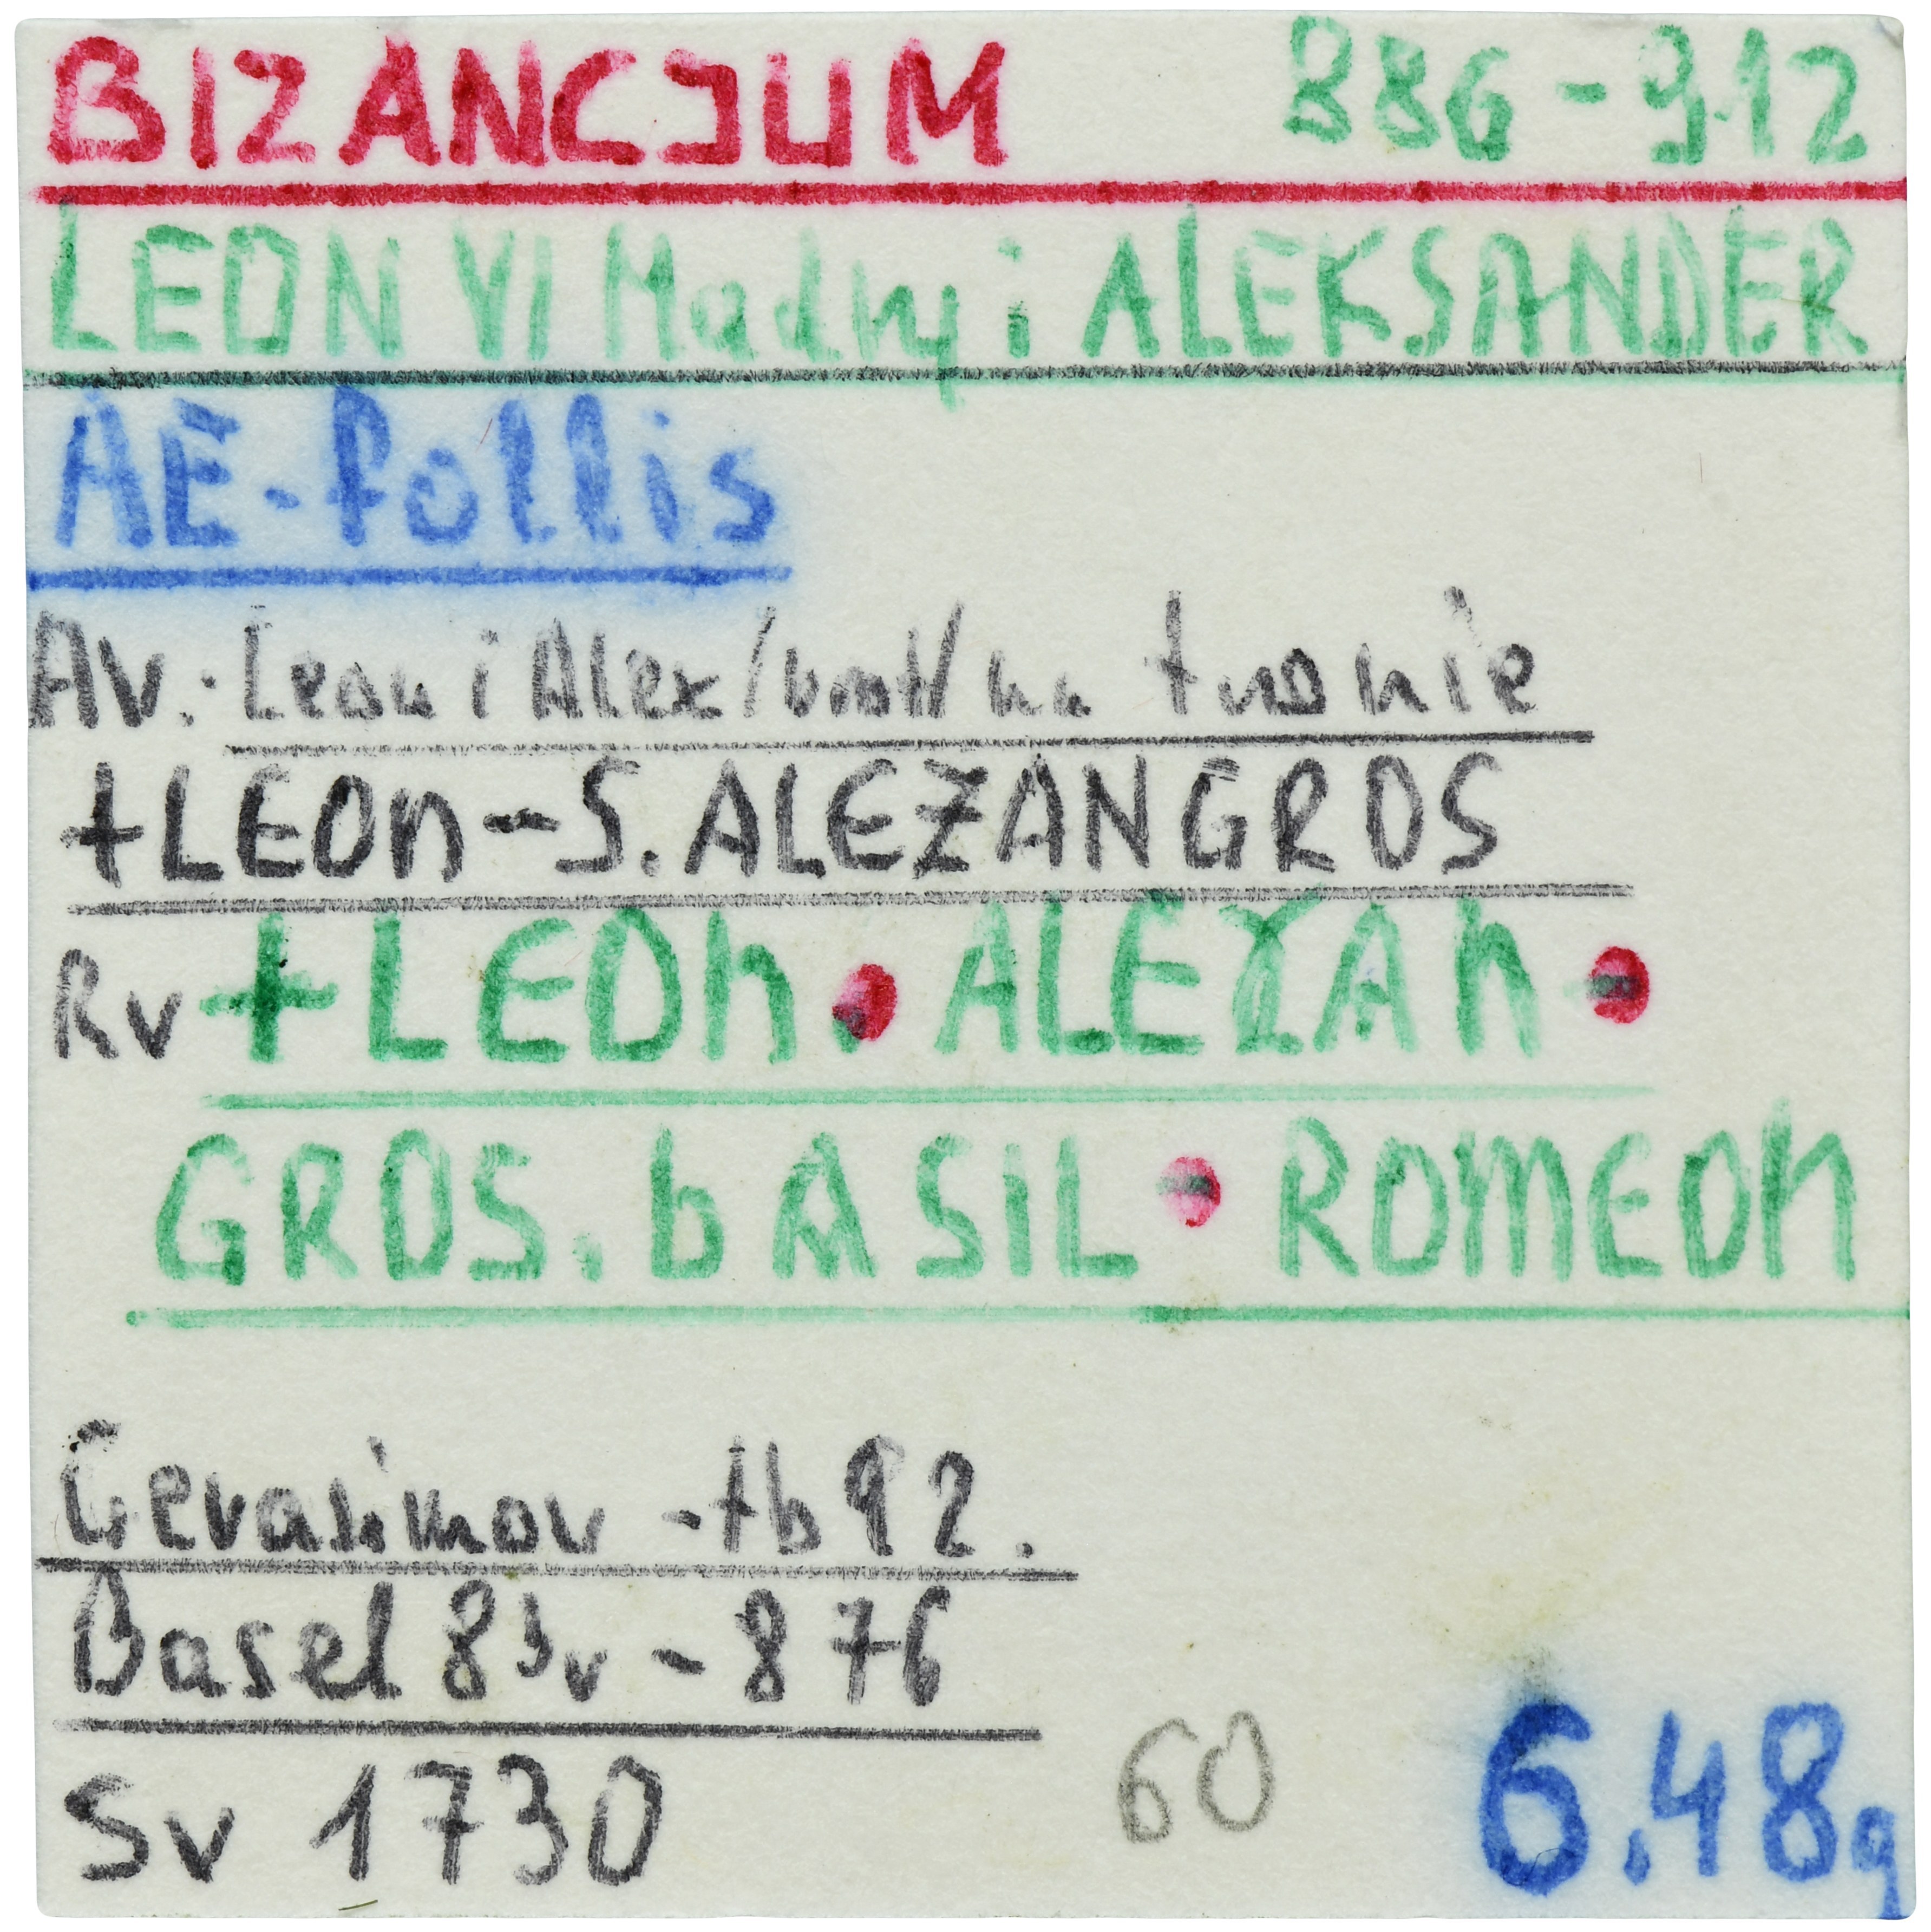 BIZANCJUM 886-912
LEON VI Mądry i ALEKSANDER
AE-follis
Av: Leon i Alex/brat/ na tronie
+LEOn-S.ALEZANGROS
Rv +LEOn • ALEXAn •
GROS. bASIL • ROMEON
Gerasimov - tb 92.
Basel 83v - 876
Sv 1730 60 6,48g